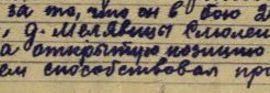 за то, что он в бою 2
, д. Мелявицы Смолен
а открытую позицию
ем способствовал пр